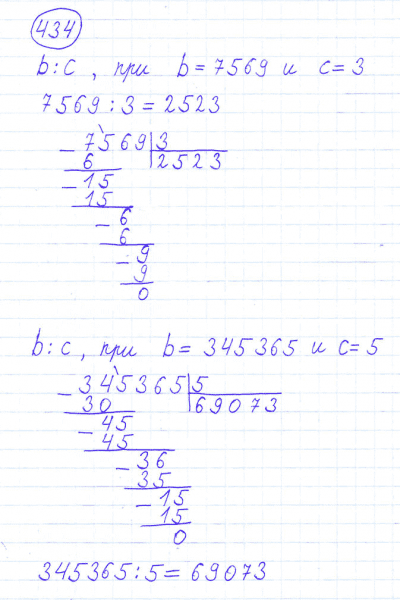 434
b:c, при b=7569 и c=3
7569:3=2523
- 7569 | 3
6 | 2523
- 15
15
- 6
6
- 9
9
0
b:c, при b= 345365 и c=5
- 345365 | 5
30 | 69073
- 45
45
- 36
35
- 15
15
0
345365:5= 69073